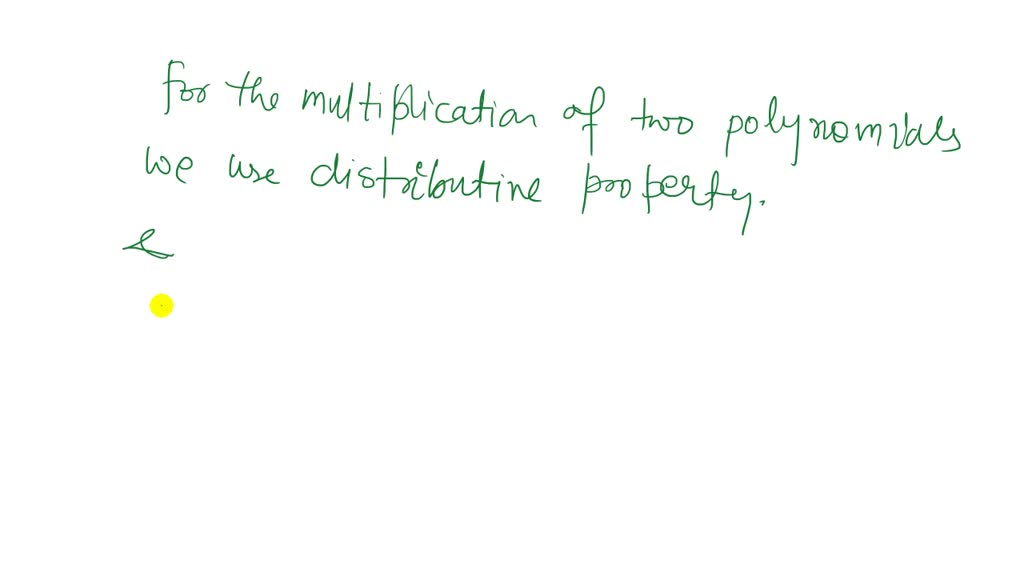 for the multiplication of two polynomials
we use distributive property.